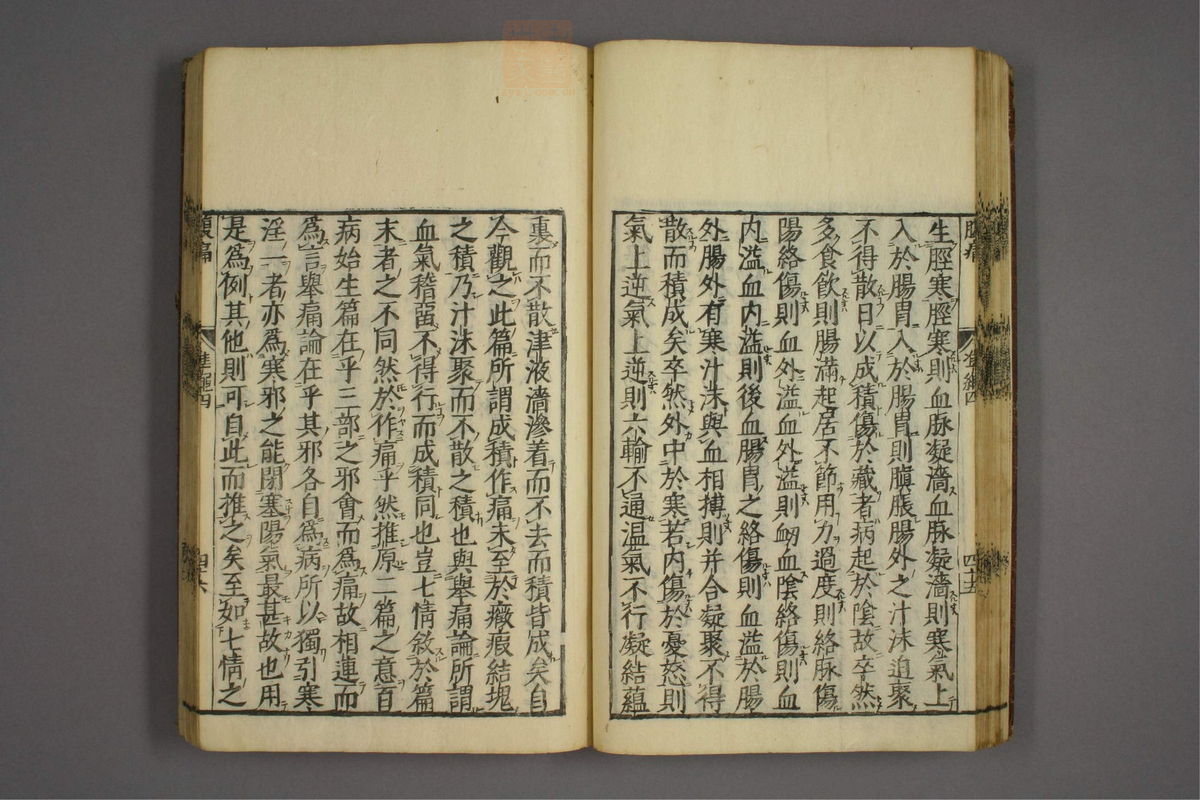 生脛寒脛寒則血脉凝濇血脉凝濇則寒氣上
入於腸胃入於腸胃則䐜脹腸外之汁沫迫聚
不得散日以成積傷於藏者病起於陰故卒然
多食飲則腸滿起居不節用力過度則絡脉傷
陽絡傷則血外溢血外溢則衂血陰絡傷則血
内溢血内溢則後血腸胃之絡傷則血溢於腸
外腸外有寒汁沫與血相搏則并合凝聚不得
散而積成矣卒然外中於寒若内傷於憂怒則
氣上逆氣上逆則六輸不通温氣不行凝結蘊
裏而不散津液濇滲着而不去而積皆成矣自
今觀之此篇所謂成積作痛未至於癥瘕結塊
之積乃汁沫聚而不散之積也與舉痛論所謂
血氣稽留不得行而成積同也豈七情敘於篇
末者之不同然於作痛乎然推原二篇之意百
病始生篇在乎三部之邪會而爲痛故相連而
爲言舉痛論在乎其邪各自爲病所以獨引寒
淫一者亦爲寒邪之能閉塞陽氣最甚故也用
是爲例其他則可自此而推之矣至如七情之